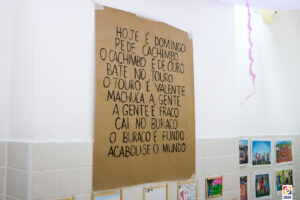 HOJE É DOMINGO
PEDE CACHIMBO
O CACHIMBO É DE OURO
BATE NO TOURO
O TOURO É VALENTE
MACHUCA A GENTE
A GENTE É FRACO
CAI NO BURACO
O BURACO É FUNDO
ACABOU-SE O MUNDO